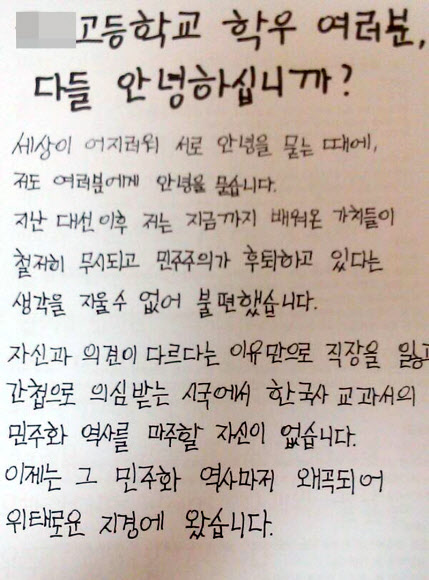 고등학교 학우 여러분,
다들 안녕하십니까?
세상이 어지러워 서로 안녕을 묻는 때에,
저도 여러분에게 안녕을 묻습니다.
지난 대선이후 저는 지금까지 배워온 가치들이
철저히 무시되고 민주주의가 후퇴하고 있다는
생각을 지울수 없어 불편했습니다.
자신과 의견이 다르다는 이유만으로 직장을 잃고
간첩으로 의심받는 시국에서 한국사 교과서의
민주화 역사를 마주할 자신이 없습니다.
이제는 그 민주화 역사마저 왜곡되어
위태로운 지경에 왔습니다.